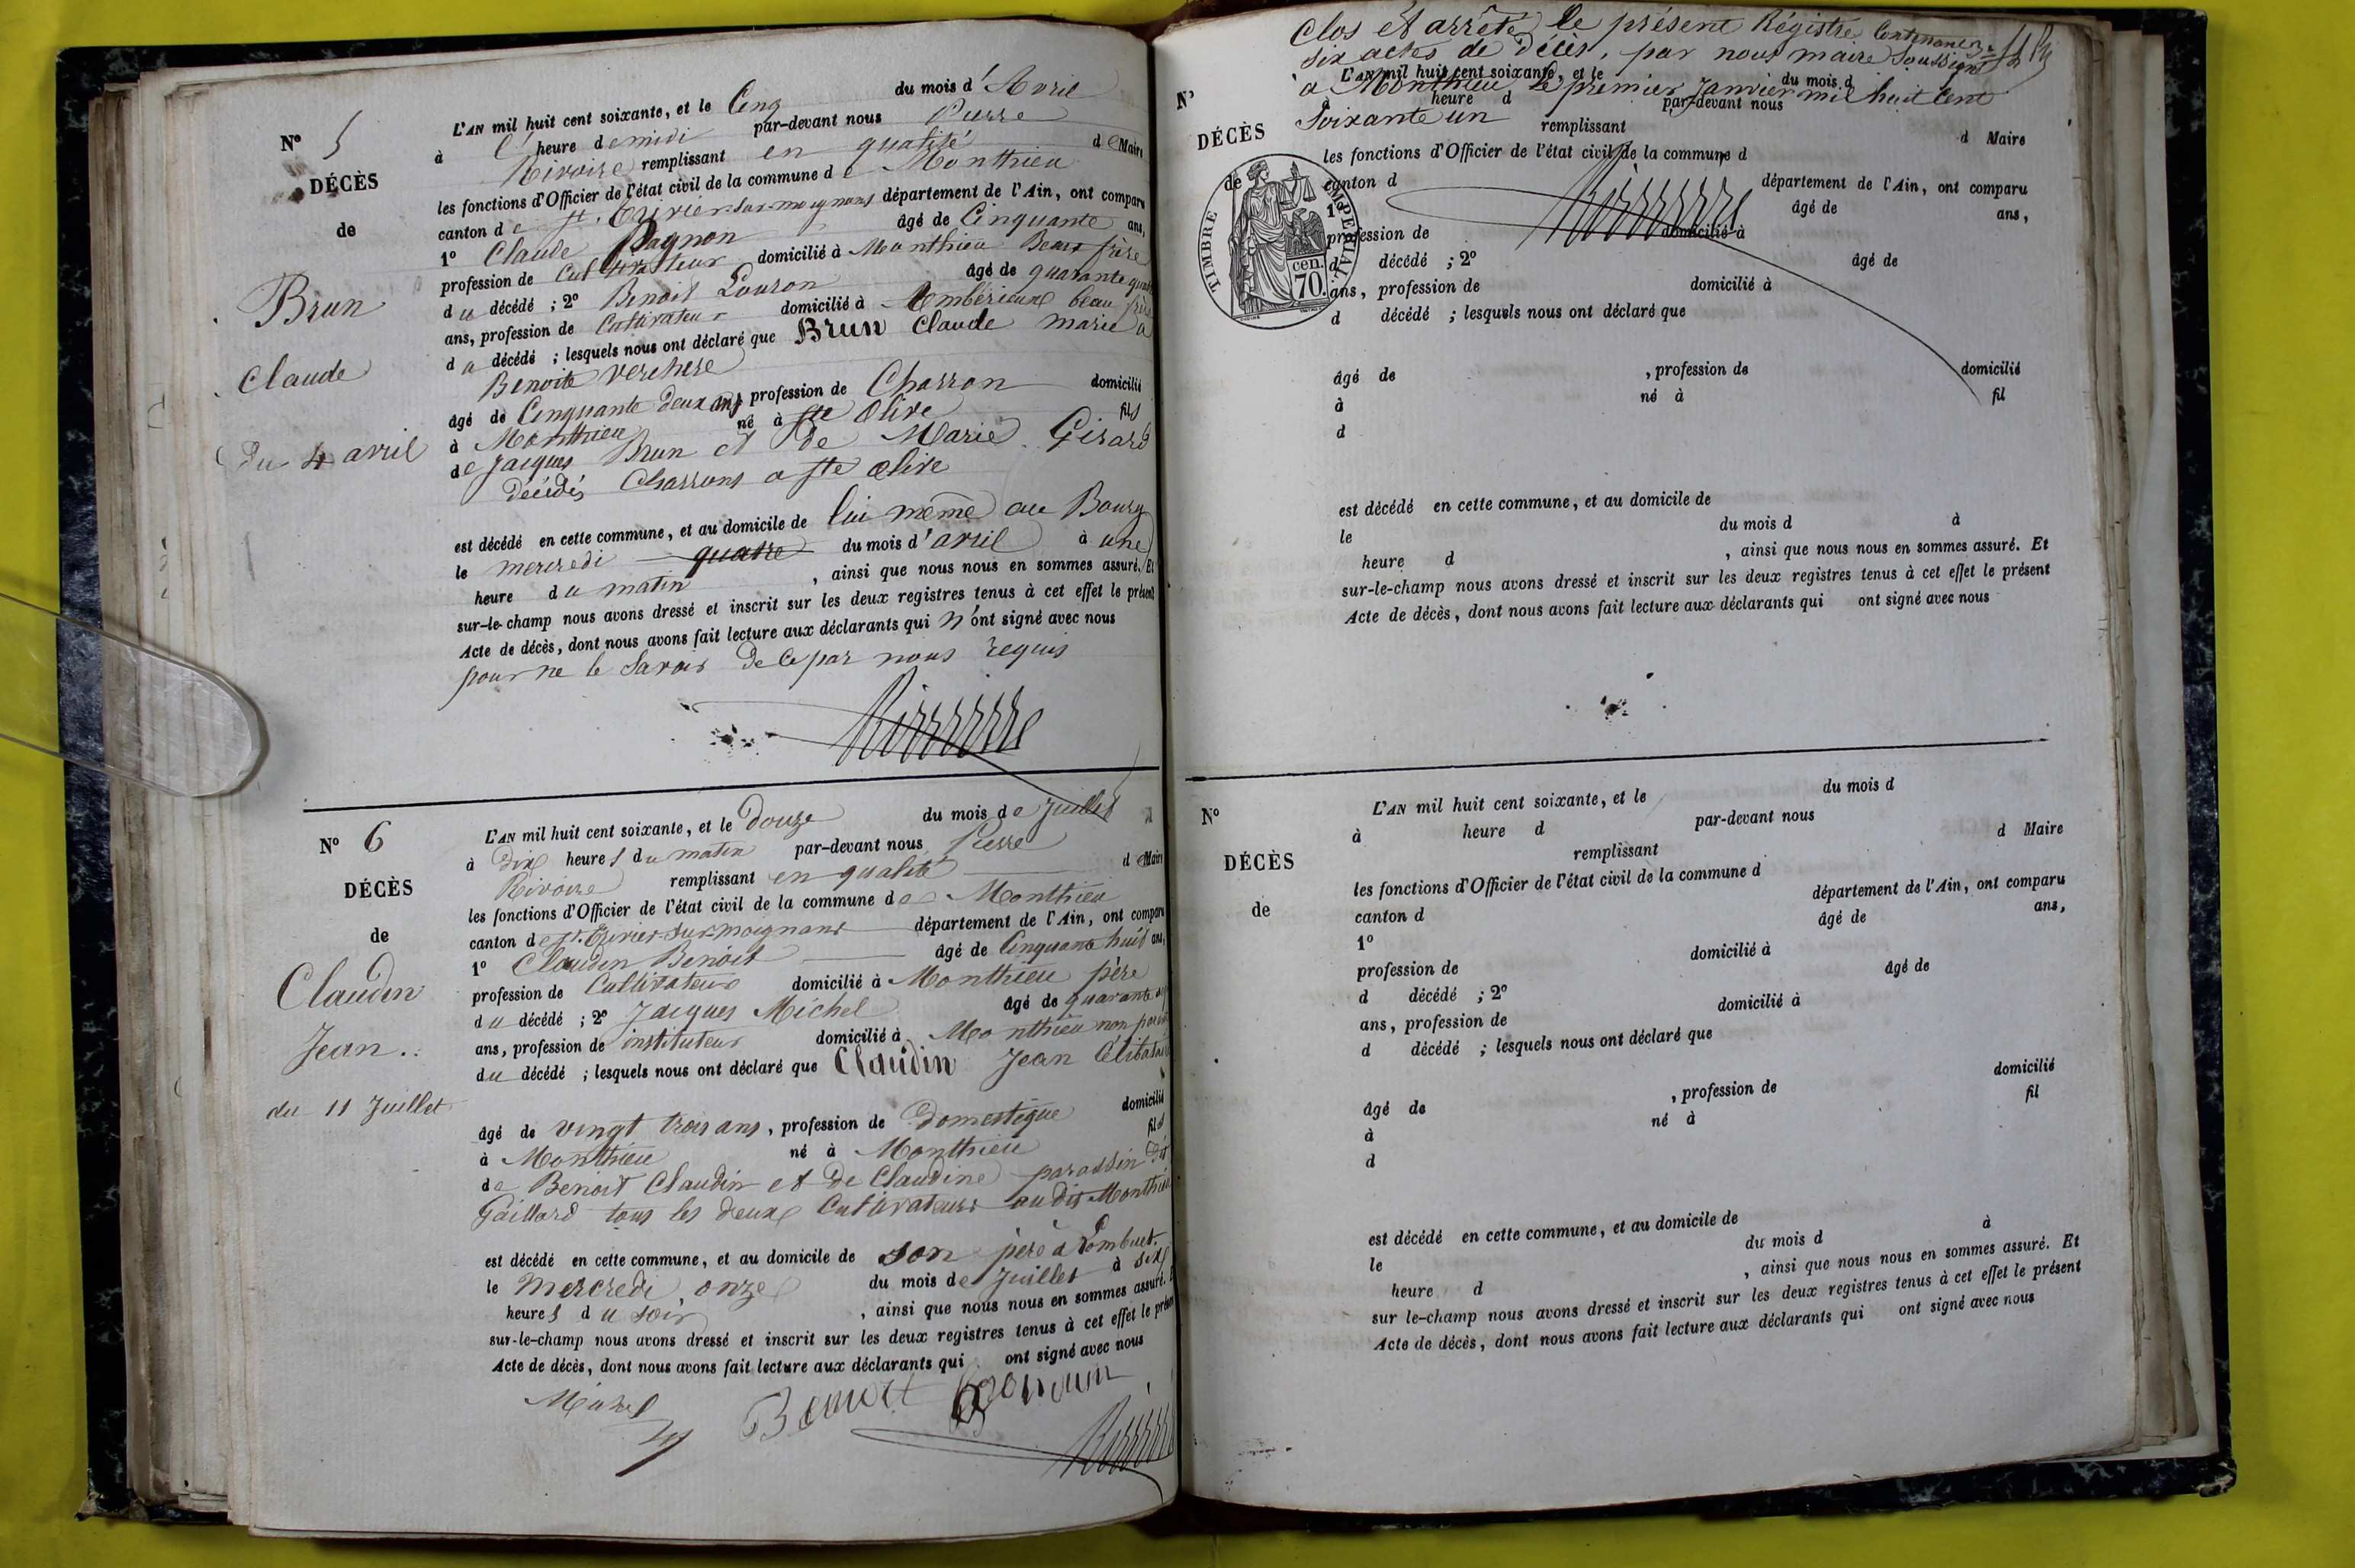 N° 5
DÉCÈS
de
Brun
Claude
du 4 avril
L'AN mil huit cent soixante, et le Cinq du mois d'Avril
à l' heure de midi par-devant nous Pierre
Rivoire remplissant en qualité de Maire
les fonctions d'Officier de l'état civil de la commune de Monthieu
canton de St. Trivier-sur-moignans département de l'Ain, ont comparu
1° Claude Pagnon âgé de Cinquante ans,
profession de Cultivateur domicilié à Monthieu Beau frère
du décédé ; 2° Benoit Louron âgé de quarante quatre
ans, profession de Cultivateur domicilié à Ambérieux beau frère
du décédé ; lesquels nous ont déclaré que Brun Claude marié à
Benoite Verchere
âgé de Cinquante deux ans profession de Charron domicilié
à Monthieu né à Ste Olive fils
de Jacques Brun et de Marie Girard
décédés Charrons a Ste Olive
est décédé en cette commune, et au domicile de lui même au Bourg
le mercredi quatre du mois d'avril à une
heure du matin , ainsi que nous nous en sommes assuré. Et
sur-le-champ nous avons dressé et inscrit sur les deux registres tenus à cet effet le présent
Acte de décès, dont nous avons fait lecture aux déclarants qui n'ont signé avec nous
pour ne le Savoir de ce par nous requis
Rivoire
N° 6
DÉCÈS
de
Claudin
Jean
du 11 Juillet
L'AN mil huit cent soixante, et le Douze du mois de Juillet
à Dix heures du matin par-devant nous Pierre
Rivoire remplissant en qualité de Maire
les fonctions d'Officier de l'état civil de la commune de Monthieu
canton de St. Trivier-sur-moignans département de l'Ain, ont comparu
1° Claudin Benoit âgé de Cinquante huit ans,
profession de Cultivateur domicilié à Monthieu père
du décédé ; 2° Jacques Michel âgé de quarante
ans, profession de instituteur domicilié à Monthieu non parent
du décédé ; lesquels nous ont déclaré que Claudin Jean Célibataire
âgé de vingt trois ans, profession de Domestique domicilié
à Monthieu né à Monthieu fils
de Benoit Claudin et de Claudine parassin dit
Gaillard tous les deux Cultivateurs au dit Monthieu
est décédé en cette commune, et au domicile de son père à Lombuet
le Mercredi onze du mois de Juillet à six
heures du soir , ainsi que nous nous en sommes assuré. Et
sur-le-champ nous avons dressé et inscrit sur les deux registres tenus à cet effet le présent
Acte de décès, dont nous avons fait lecture aux déclarants qui ont signé avec nous
Michel Benoit
Rivoire
Clos et arrêté le présent Régistre Contenant
six actes de décès, par nous maire Soussigné
a Monthieu le premier Janvier mil huit Cent
Soixante un
Rivoire
N°
DÉCÈS
de
TIMBRE IMPERIAL
70 cen.
L'AN mil huit cent soixante, et le du mois d
à heure d par-devant nous
remplissant d Maire
les fonctions d'Officier de l'état civil de la commune d
canton d département de l'Ain, ont comparu
1° âgé de ans,
profession de domicilié à
d décédé ; 2° âgé de
ans, profession de domicilié à
d décédé ; lesquels nous ont déclaré que
âgé de , profession de domicilié
à né à fil
d
est décédé en cette commune, et au domicile de
le du mois d à
heure d , ainsi que nous nous en sommes assuré. Et
sur-le-champ nous avons dressé et inscrit sur les deux registres tenus à cet effet le présent
Acte de décès, dont nous avons fait lecture aux déclarants qui ont signé avec nous
N°
DÉCÈS
de
L'AN mil huit cent soixante, et le du mois d
à heure d par-devant nous
remplissant d Maire
les fonctions d'Officier de l'état civil de la commune d
canton d département de l'Ain, ont comparu
1° âgé de ans,
profession de domicilié à
d décédé ; 2° âgé de
ans, profession de domicilié à
d décédé ; lesquels nous ont déclaré que
âgé de , profession de domicilié
à né à fil
d
est décédé en cette commune, et au domicile de
le du mois d à
heure d , ainsi que nous nous en sommes assuré. Et
sur le-champ nous avons dressé et inscrit sur les deux registres tenus à cet effet le présent
Acte de décès, dont nous avons fait lecture aux déclarants qui ont signé avec nous